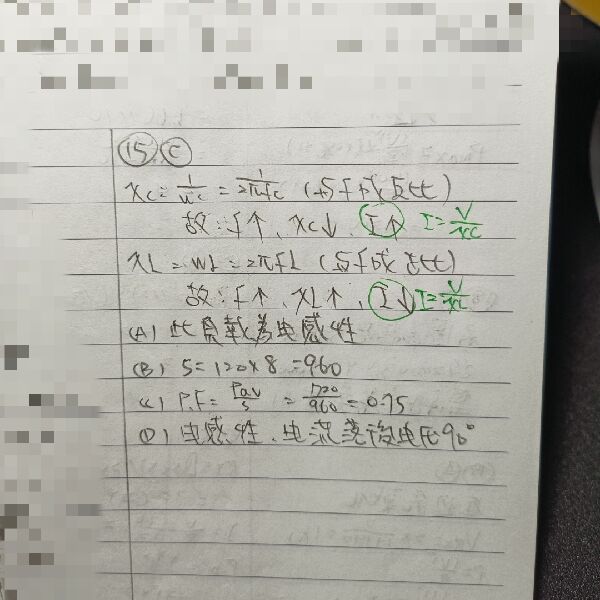 15 C
XC = 1/WC = 1/2πfC (与f成反比)
故:f↑、XC↓、I↑ I=V/XC
XL = WL = 2πfL (与f成正比)
故:f↑、XL↑、I↓ I=V/XL
(A) 此負載為电感性
(B) S=120×8=960
(C) P.F=Pav/S = 720/960 = 0.75
(D) 电感性、电流落後电压90°